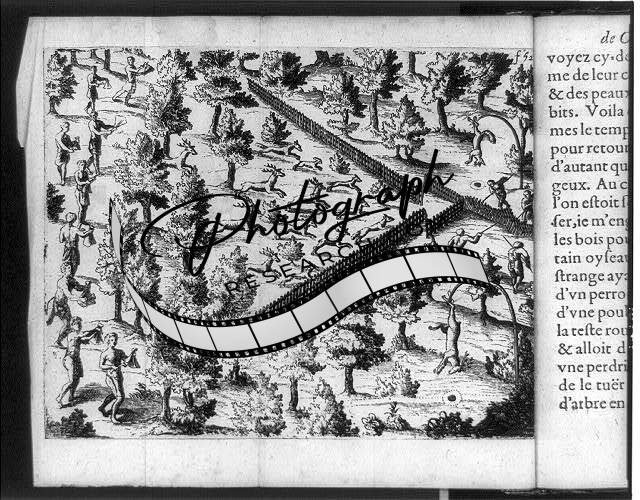 de C
voyez cy-de
me de leur c
& des peaux
bits. Voila
mes le temp
pour retour
d'autant qu
geux. Au c
l'on eſtoit
ſer, ie m'eng
les bois pou
tain oyſeau
ſtrange aya
d'vn perro
d'vne poul
la teſte rou
& alloit d
vne perdri
de le tuër
d'arbre en
Photograph
RESEARCH